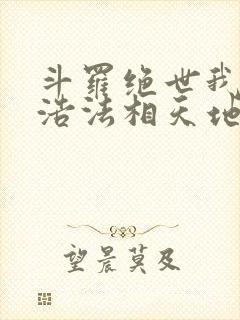 斗羅绝世我
浩法相天地
望晨莫及